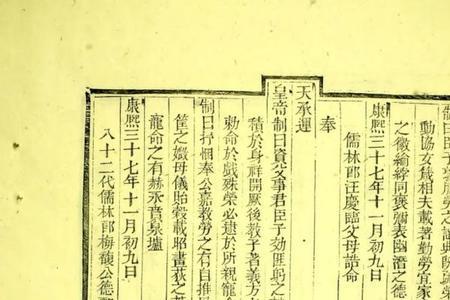 制曰臣子
動協女箴相夫載著勤勞宜家
之徽綸綍同褒嗣表幽潛之德
康熙三十七年十一月初九日
儒林郎汪慶臨父母誥命
奉
天承運
皇帝制曰資父事君臣子効匪躬之
積於身祥開厥後教子著義方
勅命於戲殊榮必逮於所親寵命
制曰抒悃奉公嘉教勞之有自推恩
筐之嫩母儀貽穀載昭畫荻之
寵命之有赫永賁泉壚
康熙三十七年十一月初九日
八十二代儒林郎梅馥公德配